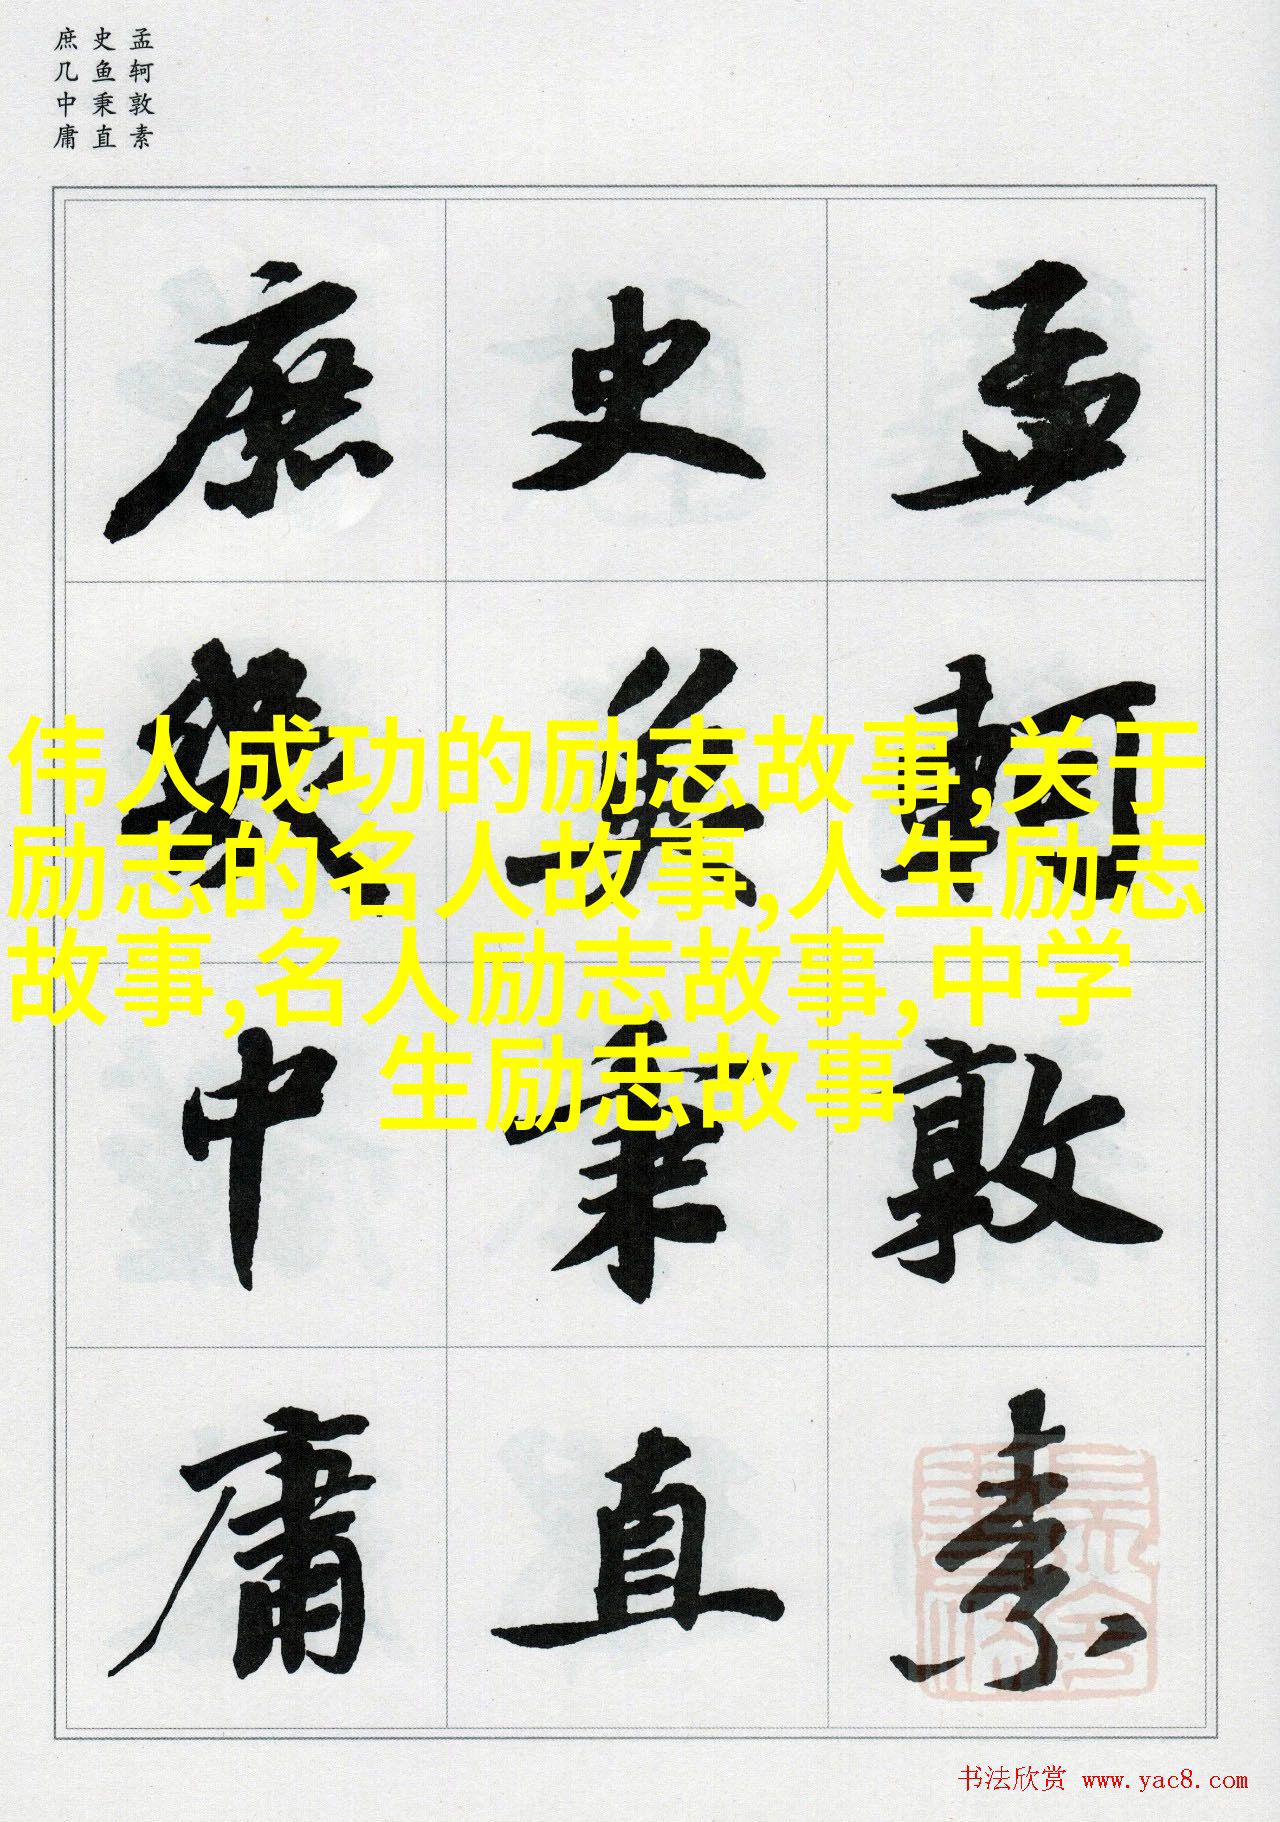 孟轲敦素
史鱼秉直
庶几中庸
孟軻敦素
史魚秉直
庶幾中庸
伟人成功的励志故事,关于
励志的名人故事,人生励志
故事,名人励志故事,中学
生励志故事
书法欣赏 www.yac8.com